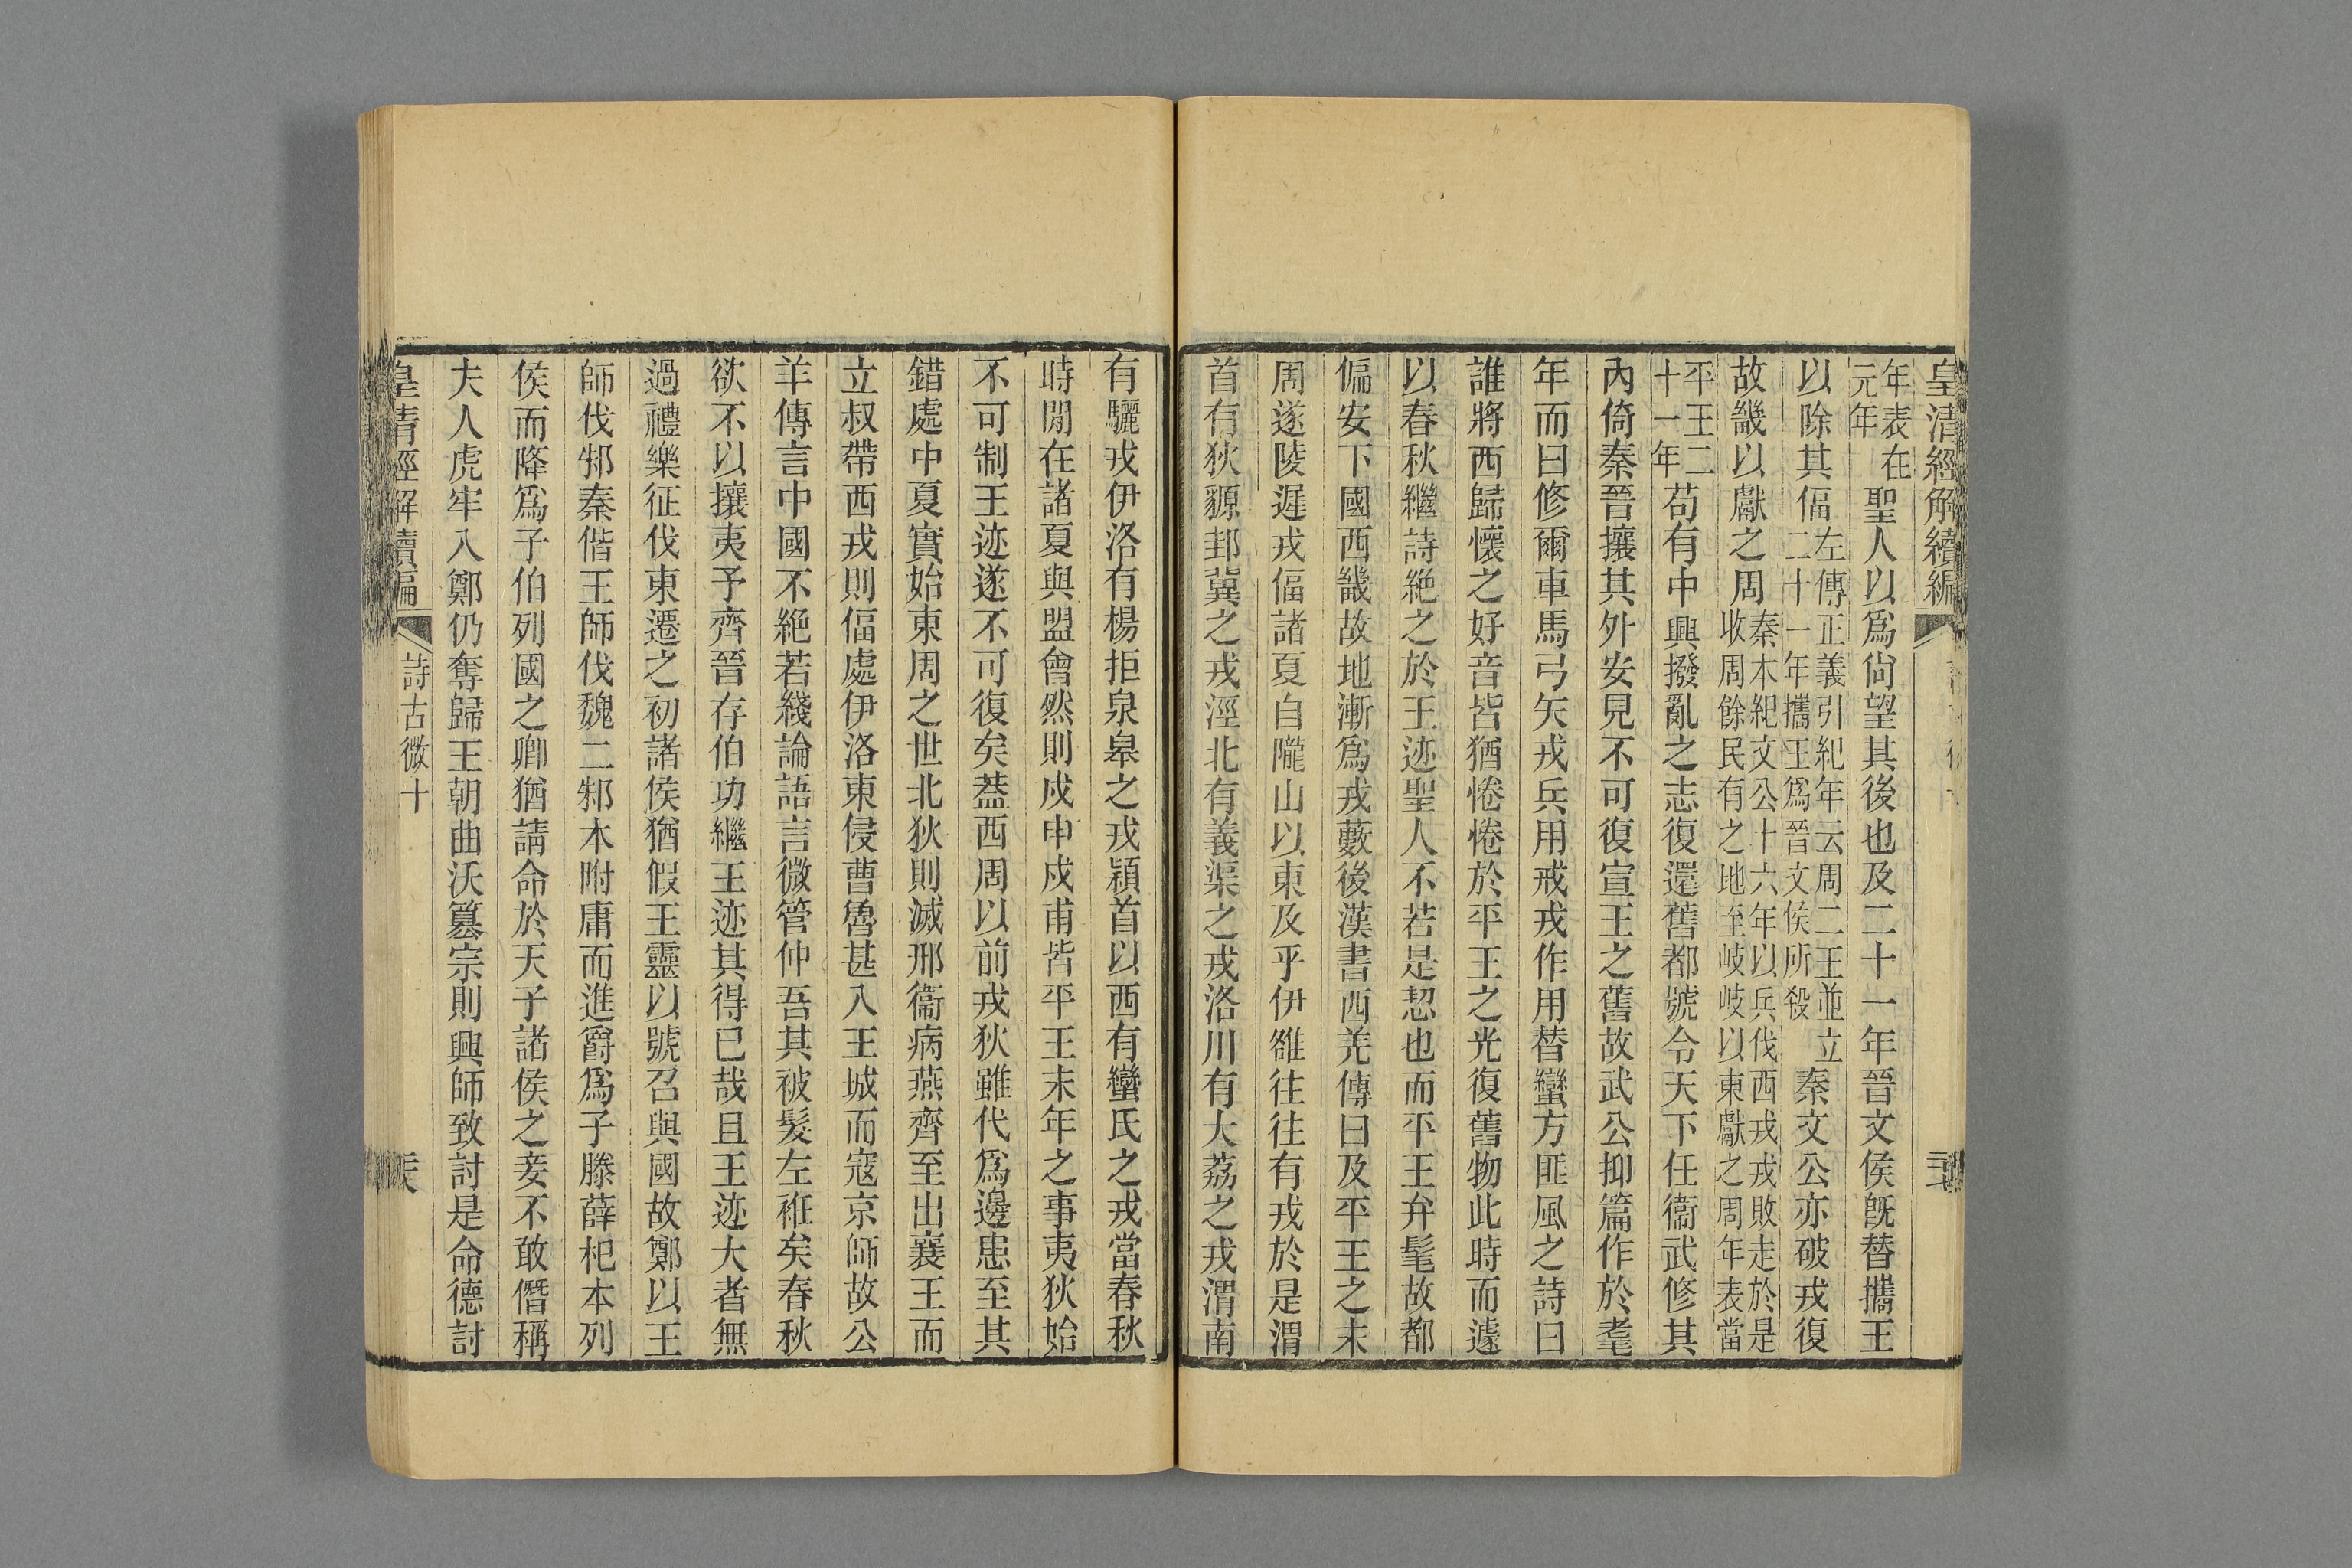 皇清經解續編
年表在
元年
聖人以爲尙望其後也及二十一年晉文侯旣替攜王
以除其偪
左傳正義引紀年云周二王並立
二十一年攜王爲晉文侯所殺
秦文公亦破戎復
故畿以獻之周
秦本紀文公十六年以兵伐西戎戎敗走於是
收周餘民有之地至岐岐以東獻之周年表當
平王二
十一年
苟有中興撥亂之志復還舊都號令天下任衞武修其
內倚秦晉攘其外安見不可復宣王之舊故武公抑篇作於耄
年而曰修爾車馬弓矢戎兵用戒戎作用替蠻方匪風之詩曰
誰將西歸懷之好音皆猶惓惓於平王之光復舊物此時而遽
以春秋繼詩絶之於王迹聖人不若是恝也而平王弁髦故都
偏安下國西畿故地漸爲戎藪後漢書西羌傳曰及平王之末
周遂陵遲戎偪諸夏自隴山以東及乎伊雒往往有戎於是渭
首有狄豲邽冀之戎涇北有義渠之戎洛川有大荔之戎渭南
有驪戎伊洛有楊拒泉皋之戎潁首以西有蠻氏之戎當春秋
時閒在諸夏與盟會然則戍申戍甫皆平王末年之事夷狄始
不可制王迹遂不可復矣葢西周以前戎狄雖代爲邊患至其
錯處中夏實始東周之世北狄則滅邢衞病燕齊至出襄王而
立叔帶西戎則偪處伊洛東侵曹魯甚入王城而寇京師故公
羊傳言中國不絶若綫論語言微管仲吾其被髮左衽矣春秋
欲不以攘夷予齊晉存伯功繼王迹其得已哉且王迹大者無
過禮樂征伐東遷之初諸侯猶假王靈以號召與國故鄭以王
師伐邾秦偕王師伐魏二邾本附庸而進爵爲子滕薛杞本列
侯而降爲子伯列國之卿猶請命於天子諸侯之妾不敢僭稱
夫人虎牢入鄭仍奪歸王朝曲沃簒宗則興師致討是命德討
皇清經解續編
詩古微十